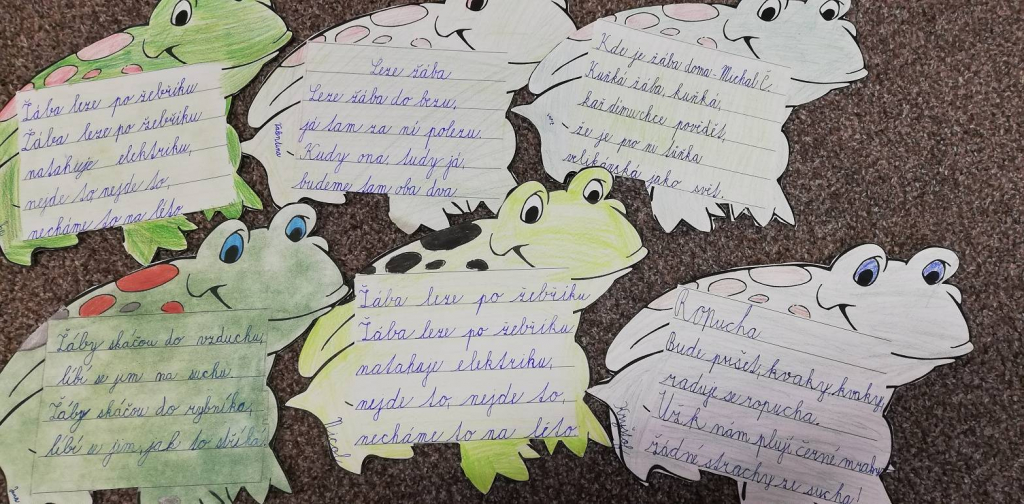 Žába leze po žebříku
Žába leze po žebříku
natahuje elektriku,
nejde to, nejde to,
necháme to na léto
Leze žába
Leze žába do bezu,
já tam za ní polezu.
Kudy ona, tudy já,
budeme tam oba dva.
Kde je žába doma - Michal Č.
Kuňká žába, kuňká,
každému chce povědět,
že je pro ni tůňka
velikánská jako svět.
Žáby skáčou do vzduchu,
líbí se jim na suchu
Žáby skáčou do rybníka,
líbí se jim, jak to stříká
Žába leze po žebříku
Žába leze po žebříku
natahuje elektriku,
nejde to, nejde to,
necháme to na léto
Ropucha
Bude pršet, kvaky, kvaky,
raduje se ropucha.
Už k nám plují černé mraky
žádné strachy ze sucha!